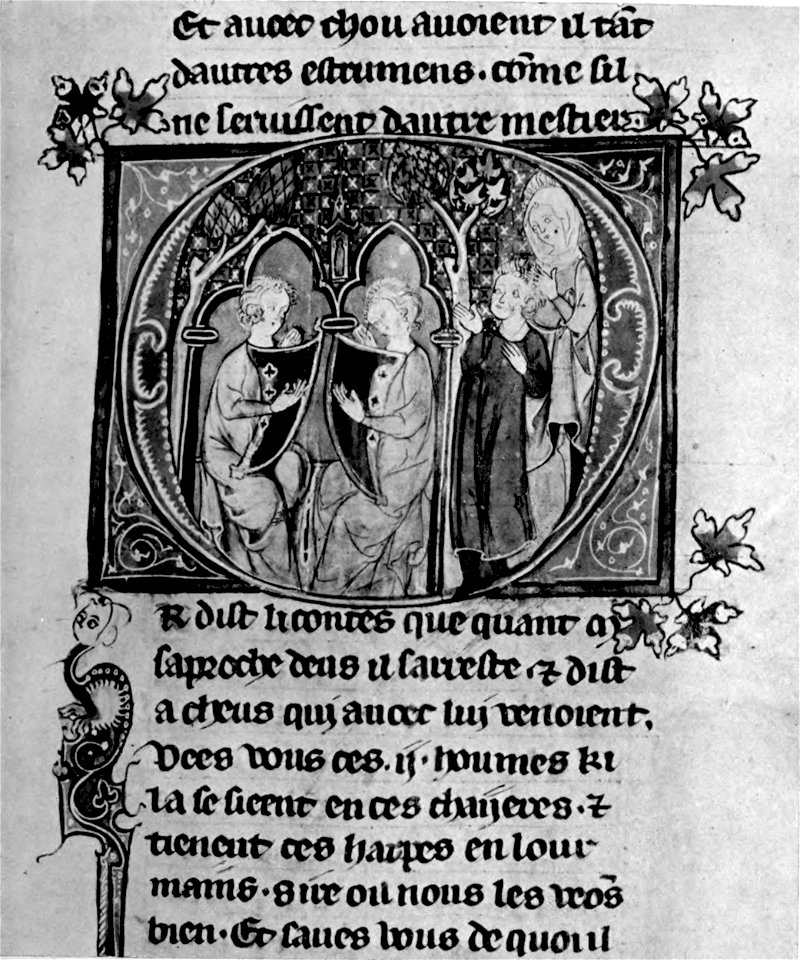 Et auoec chou auoient il tāt
dautres estrumens. cōme sil
ne seruissent dautre mestier.
OR dist li contes que quant
saproche deus il sarreste ⁊ dist
a cheus qui auoec lui venoient.
Vees vous ces .ij. houmes ki
la se sieent en ces chaijeres. ⁊
tienent ces harpes en lour
mains. sire oil nous les veōs
bien. Et saues vous de quoi il